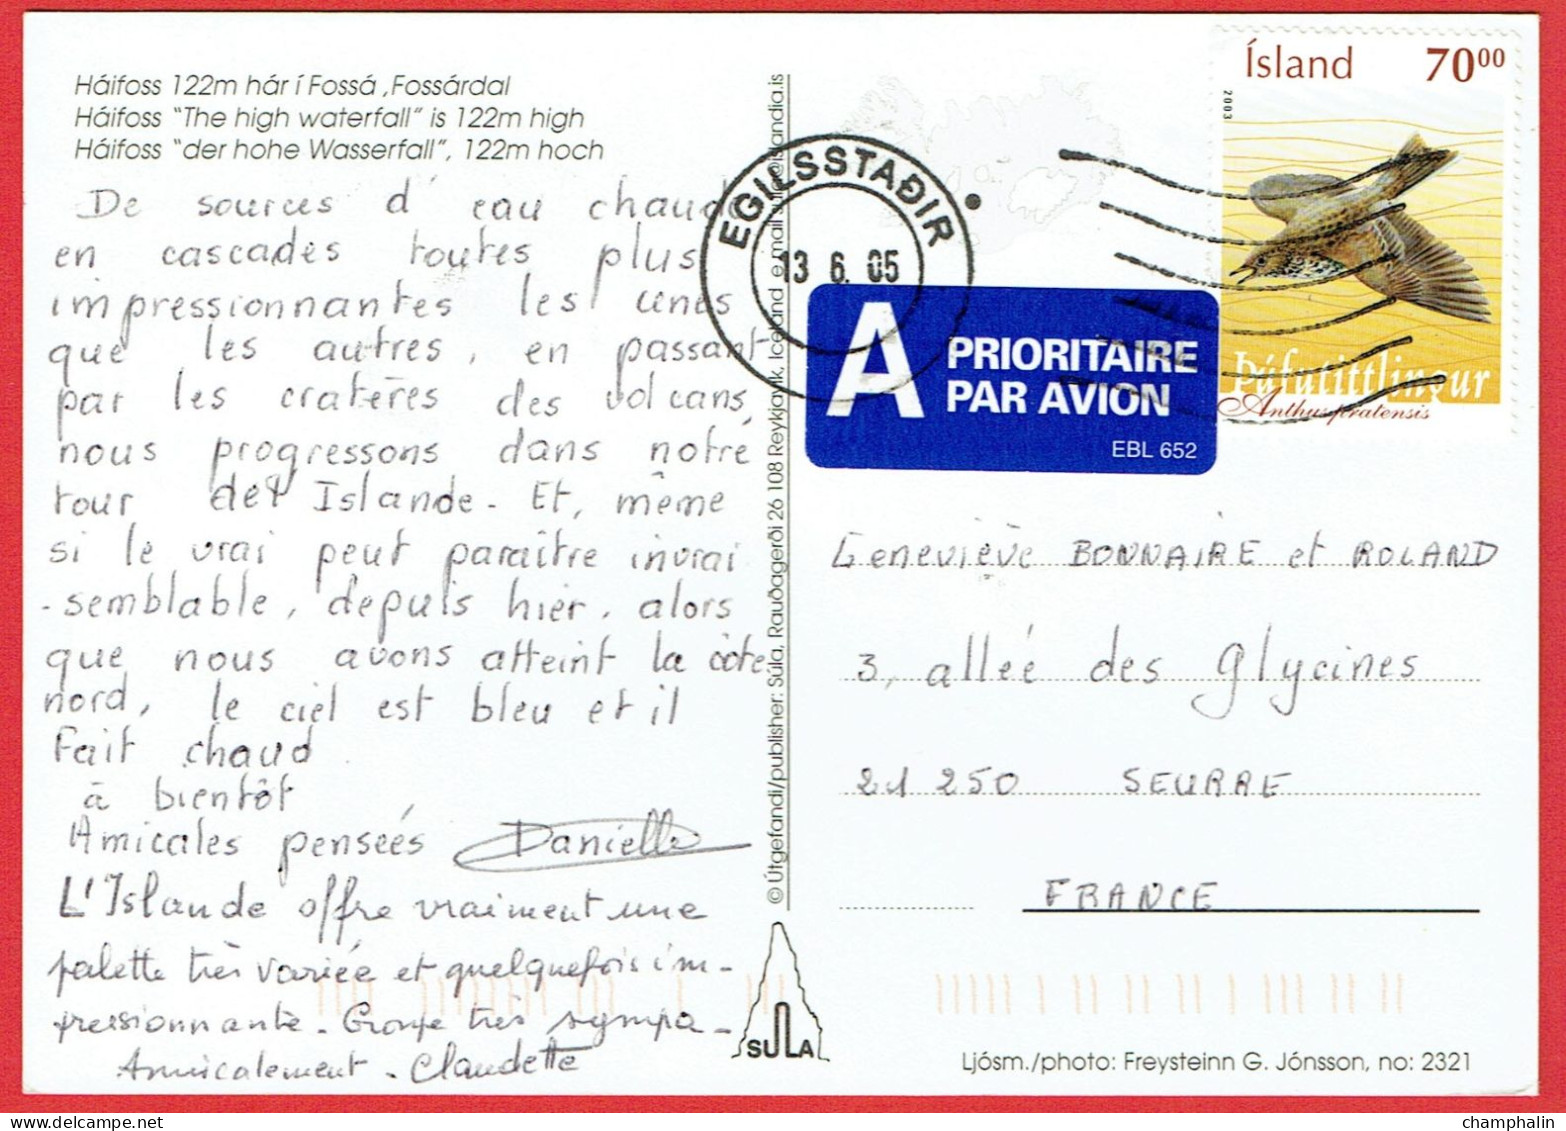 Háifoss 122m hár í Fossá ,Fossárdal
Háifoss "The high waterfall" is 122m high
Háifoss "der hohe Wasserfall", 122m hoch
De sources d'eau chaude
en cascades toutes plus
impressionnantes les unes
que les autres, en passant
par les cratères des volcans,
nous progressons dans notre
tour de l'Islande. Et, même
si le vrai peut paraître invrai
-semblable, depuis hier, alors
que nous avons atteint la côte
nord, le ciel est bleu et il
Fait chaud
à bientôt
Amicales pensées Danielle
L'Islande offre vraiment une
palette très variée et quelquefois im-
pressionnante. Groupe très sympa-
Amicalement. Claudette
© Útgefandi/publisher: Sula, Rauðagerði 26 108 Reykjavík, Iceland
SULA
EGILSSTAÐIR
13 6. 05
Ísland 7000
2003
Þúfutittlingur
Anthus pratensis
A PRIORITAIRE
PAR AVION
EBL 652
Geneviève BONNAIRE et ROLAND
3, allée des Glycines
21 250 SEURRE
FRANCE
Ljósm./photo: Freysteinn G. Jónsson, no: 2321
champhalin